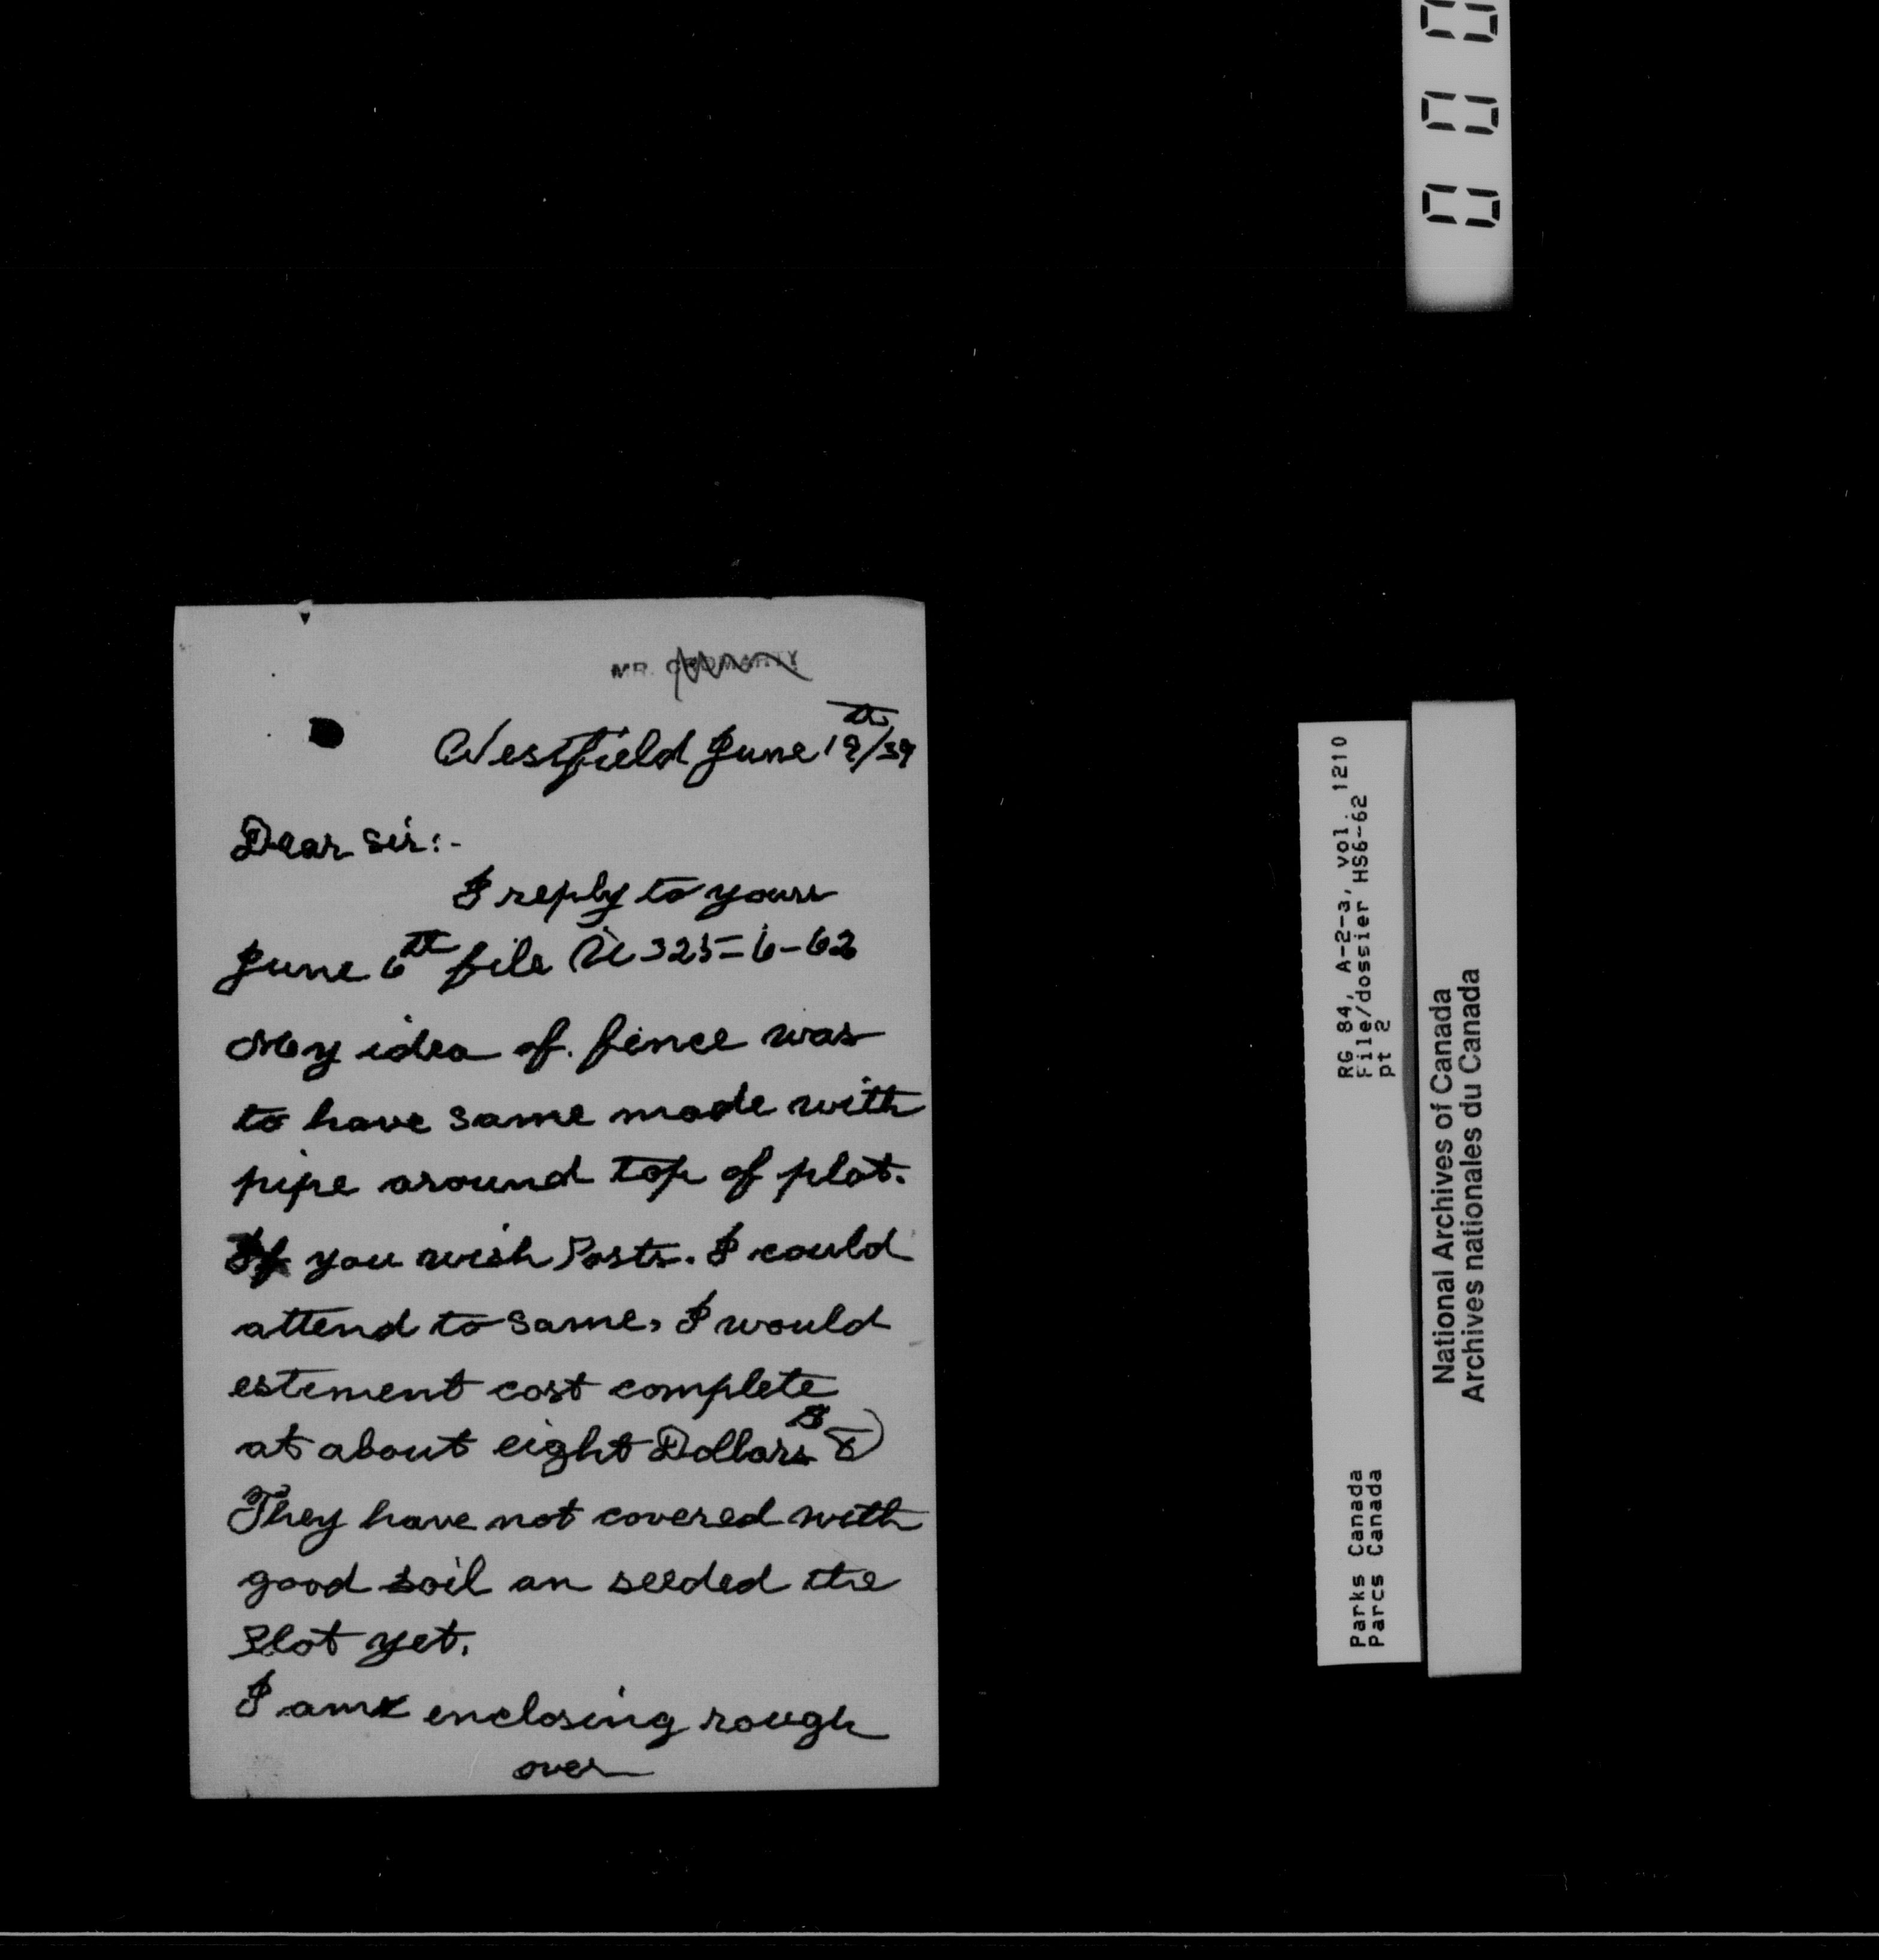 000
MR. CROMARTY
Westfield June 19th/39
Dear Sir:-
I reply to yours
June 6th file U 325=6-62
My idea of. fence was
to have same made with
pipe around top of plot.
If you wish Posts. I could
attend to same, I would
estement cost complete
at about eight Dollars
They have not covered with
good soil an seeded the
Plot yet.
I am enclosing rough
over
RG 84, A-2-3, vol. 1210
File/dossier HS6-62
pt 2
Parks Canada
Parcs Canada
National Archives of Canada
Archives nationales du Canada